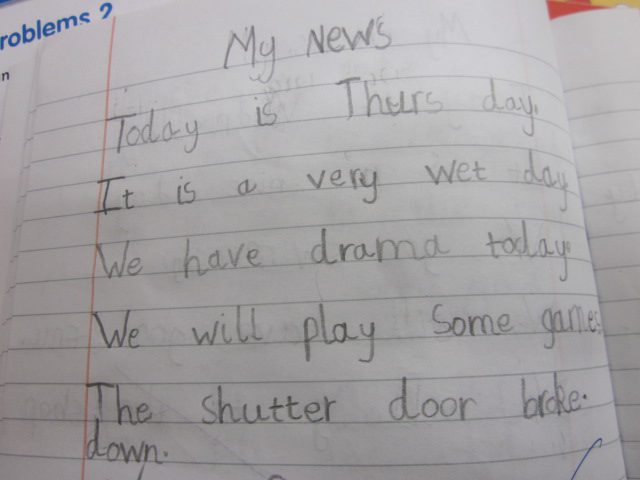 roblems 2
n
My News
Today is Thurs day.
It is a very wet day
We have drama today.
We will play Some games
The shutter door broke.
down.